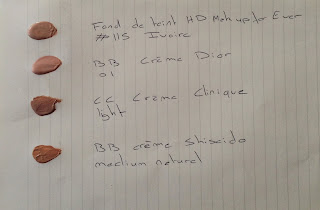 Fond de teint HD Mak up for Ever
#115 Ivoire
BB Crème Dior
01
CC Crème Clinique
light
BB crème Shiseido
medium naturel